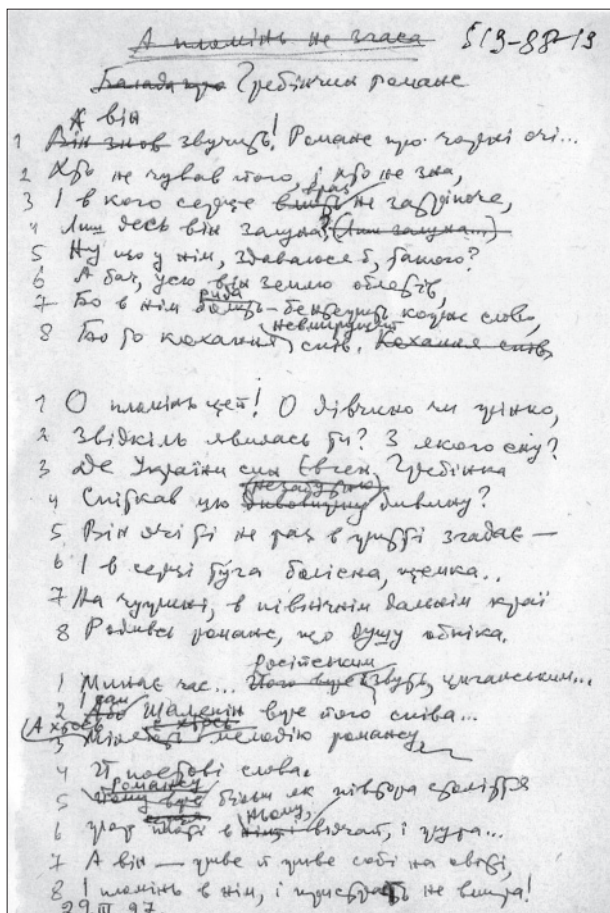 А пломінь не згаса 519-88-19
Балада про Гребінчин романс
А він
1 Він знов звучить! Романс про чорні очі...
2 Хто не чував його, і хто не зна,
3 І в кого серце враз не затріпоче,
4 Лиш десь він залуна? (Лиш залуна...)
5 Ну що у нім, здавалося б, такого?
6 А бач, усю він землю облетів,
7 Бо в нім рида бентежить кожне слово,
невмирущий
8 Бо то кохання спів. Кохання спів
1 О пломінь цей! О дівчино чи жінко,
2 Звідкіль явилась ти? З якого сну?
3 Де України син Євген Гребінка
(незабутню)
4 Спіткав цю дивовижну дивину?
5 Він очі ті не раз в житті згадає —
6 І в серці туга болісна, щемка..
7 На чужині, в північнім дальнім краї
8 Родивсь романс, що душу обпіка.
російським
1 Минає час... Його вже звуть, циганським...
І сам
2 Шаляпін вже його співа...
(А хтось
3 мелодію романсу
4 Й поетові слова.
романсу
5 Йому вже більш як півтора століття
ньому,
6 в відчай, і журба...
7 А він — живе й живе собі на світі,
8 І пломінь в нім, і пристрасть не вмира!
29.III 97.